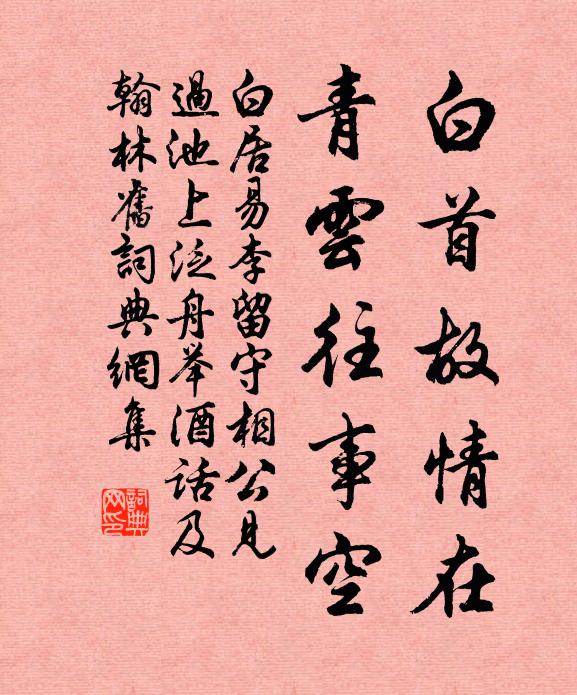 白首故情在
青雲往事空
白居易李留守相公見
過池上泛舟举酒話及
翰林舊詞典網集
詞典
网印